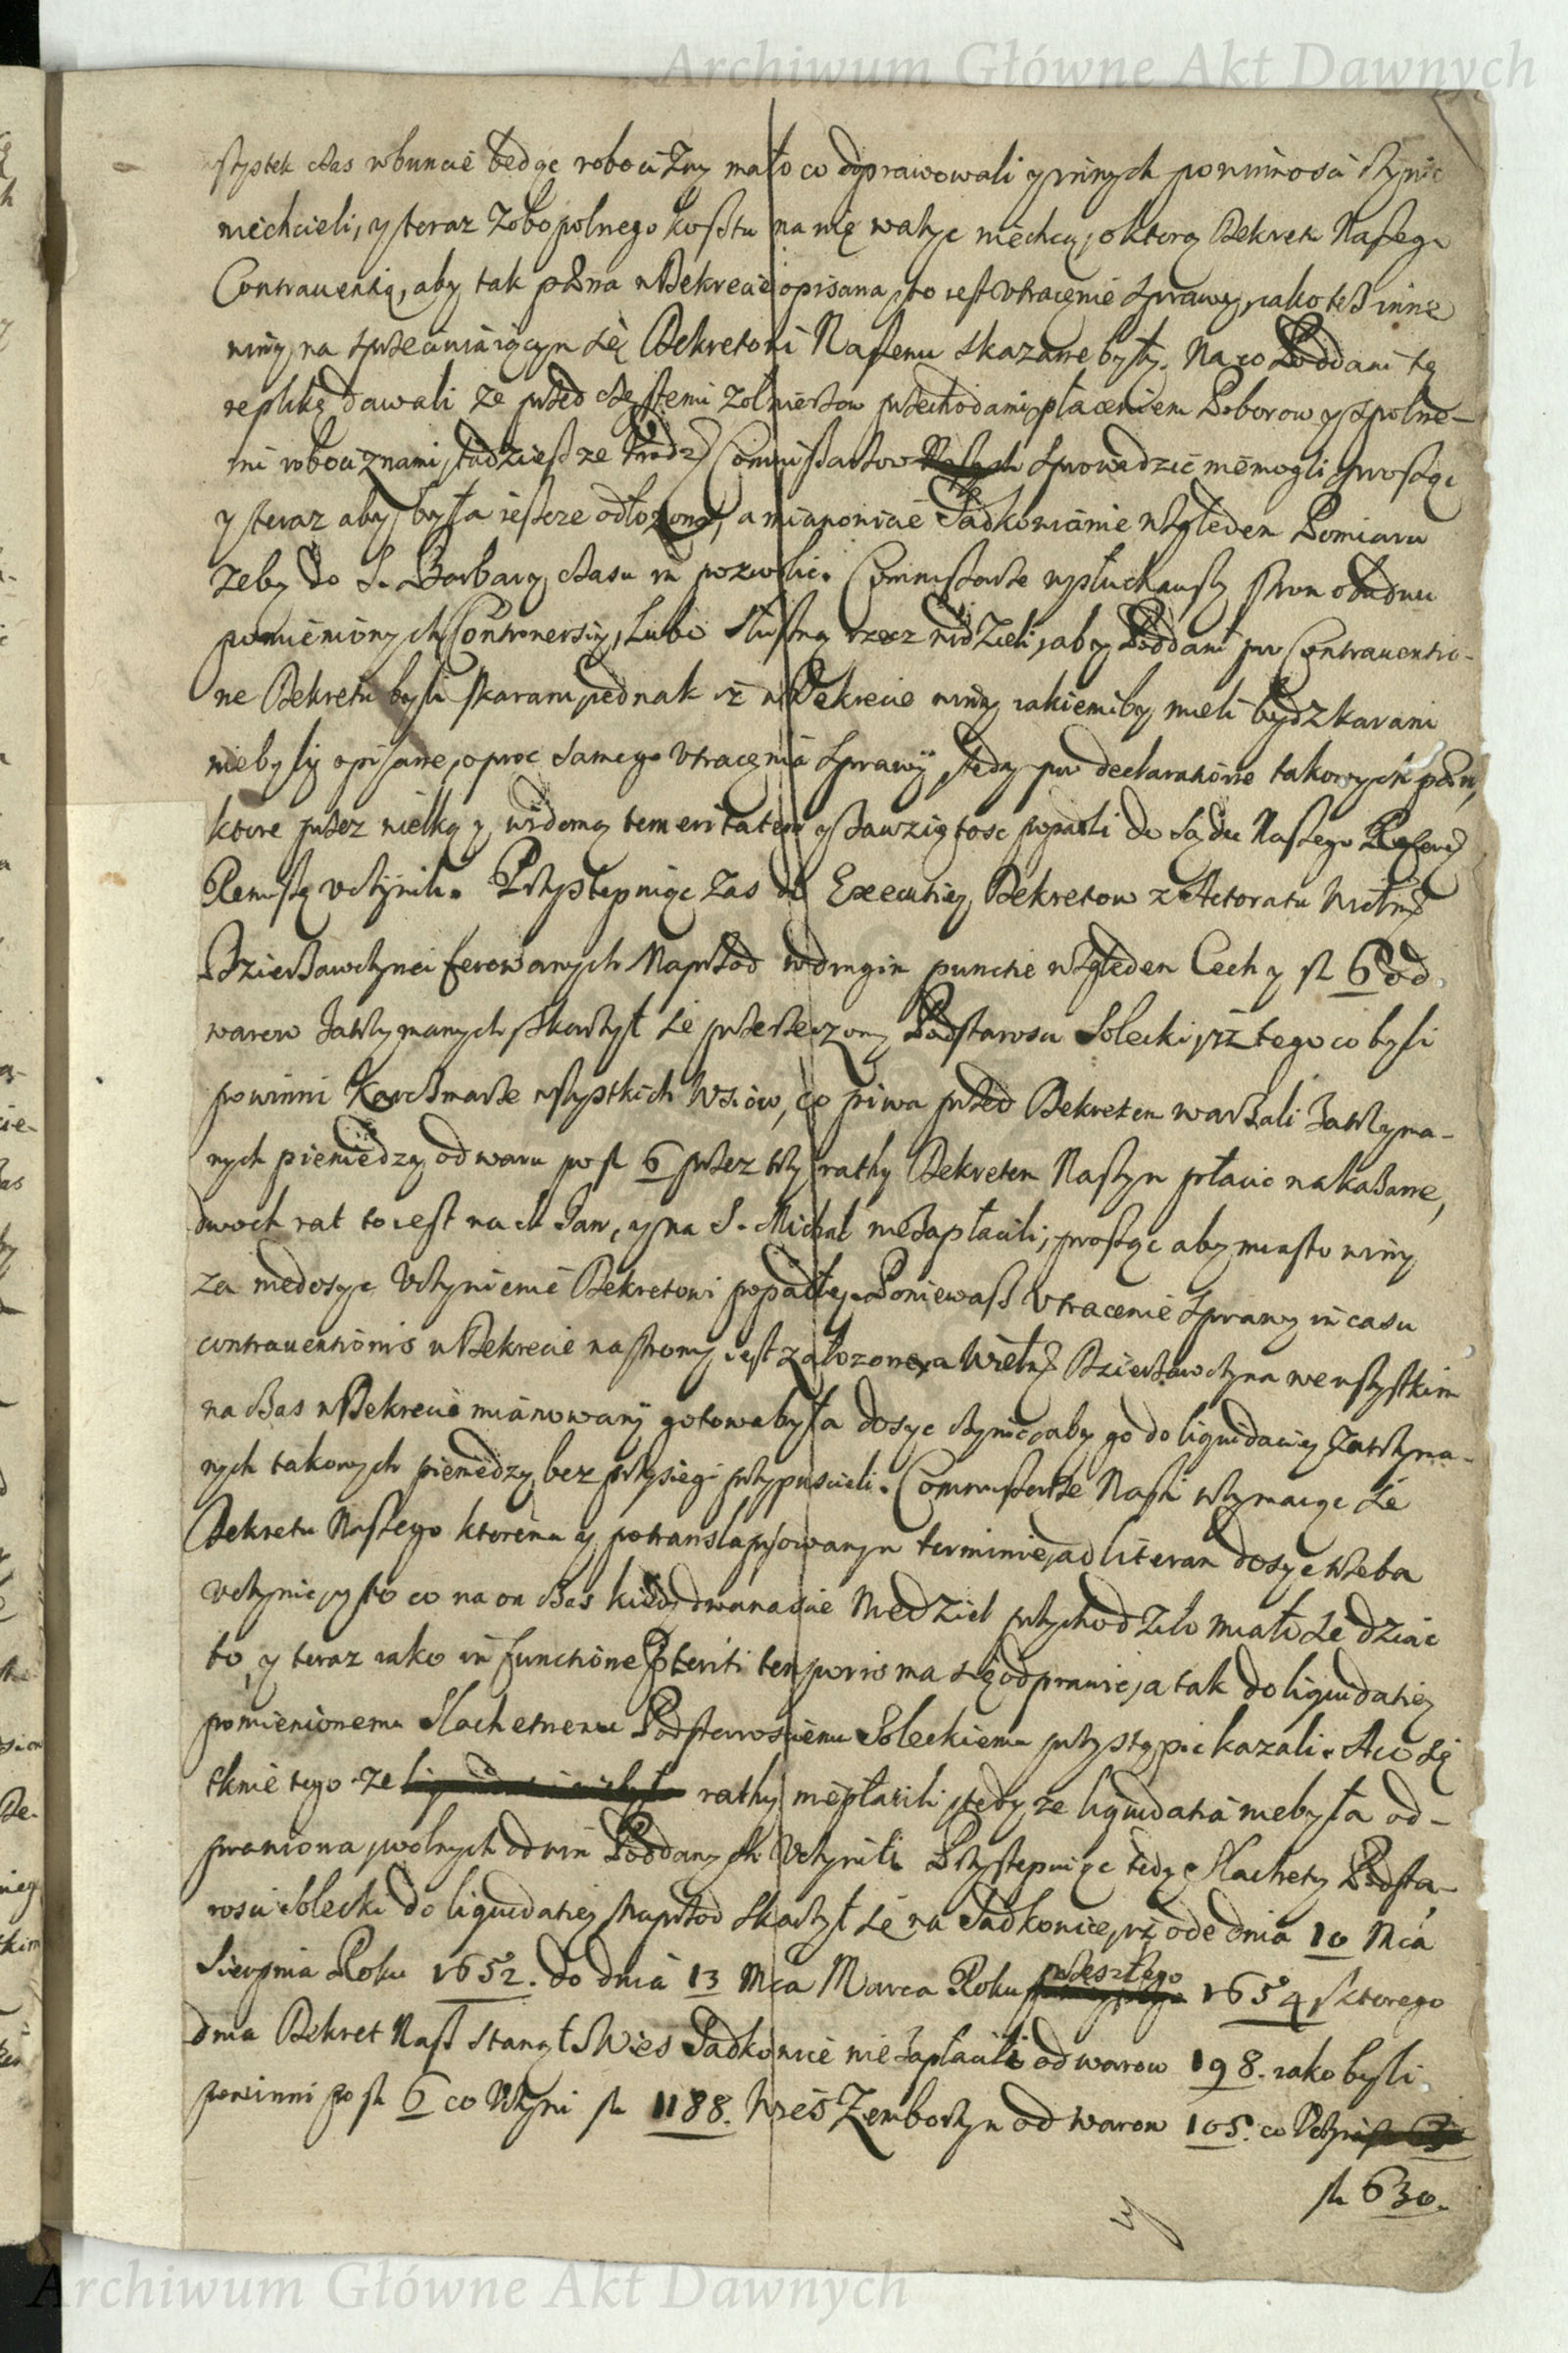 Archiwum Główne Akt Dawnych
stystek czas w buncie będąc robocizny mało co odprawowali y innych powinności czynic
niechcieli, y teraz z obopolnego kosztu na nię wazyc niechcą, o ktorą Dekretu Naszego
Contrauentią, aby tak pæna w Dekrecie opisana, to iest vtracenie sprawy, iako tesz inne
winy, na sprzeciwiaiącym się Dekretowi Naszemu skazane były. Na co Poddani tę
replikę dawali ze przed częstemi zołnierzow przechodami, płaceniem Poborow y spolne-
mi robociznami, tudziesz ze Commissarzow sprowadzić niemogli, prosząc
y teraz aby była ieszcze odłozona, a mianowicie Sadkowianie względem Pomiaru
zeby do S. Barbary czasu im pozwolic. Commissarze wysłuchawszy stron obudwu
pomienionych Controuersiy, Lubo słuszną rzecz widzieli, aby Poddani pro Contrauentio-
ne Dekretu byli skarani, iednak isz w Dekrecie winy iakiemiby mieli bydz karani
niebyly opisane, oproc samego vtracenia sprawy, tedy pro declaratione takowych pæn,
ktore przez wielką y widomą temeritatem y zawziętosc popadli do Sądu Naszego Refend
Remissę vczynili. Przystępuiąc zas do Executiey Dekretow z Actoratu Wielm
Dzierzawczynei ferowanych Naprzod w drugim puncie względem Cechy fl 6 od
warow zatrzymanych, skarzył się przerzeczony Podstarosci Solecki, isz tego co byli
powinni Karczmarze wszystkich Wsiow, co piwa przed Dekretem warzali zatrzyma-
nych pieniedzy od waru po fl 6 przez trzy rathy Dekretem Naszym płacic nakazane,
dwoch rat to iest na S. Jan, y na S. Michał niezapłacili, prosząc aby miasto winy
za niedosyc vczynienie Dekretowi popadłey. Poniewasz vtracenie sprawy in casu
contrauentionis w Dekrecie na strony iest załozone, a Wielm Dzierzawczyna we wszystkim
na czas w Dekrecie mianowany gotowa była dosyc czynic, aby go do liquidaciey zatrzyma-
nych takowych pieniedzy bez przysięgi przypuscili. Commissarze Nasi trzymaiąc się
Dekretu Naszego ktoremu y po translapsowanym terminie, ad literam dosyc trzeba
vczynic, y to co na on czas kiedy dwanascie Niedziel przychodziło miało się dziać
to, y teraz iako in functione præteriti temporis ma się odprawic, a tak do liquidatiey
pomienionemu Slachetnemu Podstarosciemu Soleckiemu przystąpic kazali. A co się
tknie tego ze rathy niepłacili, tedy ze liquidatia niebyła od-
prawiona, wolnych od win Poddanych vczynili. Przystępuiąc tedy Slachetny Podsta-
rosci Solecki do liquidatiey Naprzod skarzył się na Sadkowice, isz ode dnia 10 Mca
Sierpnia Roku 1652. do dnia 13 Mca Marca Roku przeszłego 1654, ktorego
dnia Dekret Nasz stanął. Wies Sadkowice nie zapłacili od warow 198. iako byli
powinni po fl 6 co vczyni fl 1188. Wies Zemborzyn od warow 105. co vczyni
fl 630.
y
Archiwum Główne Akt Dawnych